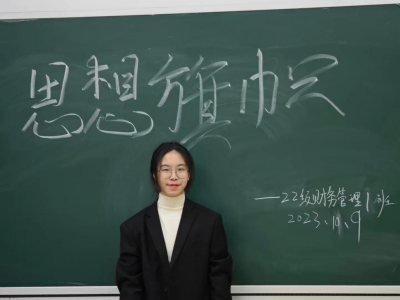 思想旗帜
——22级财务管理1班
2023.11.9